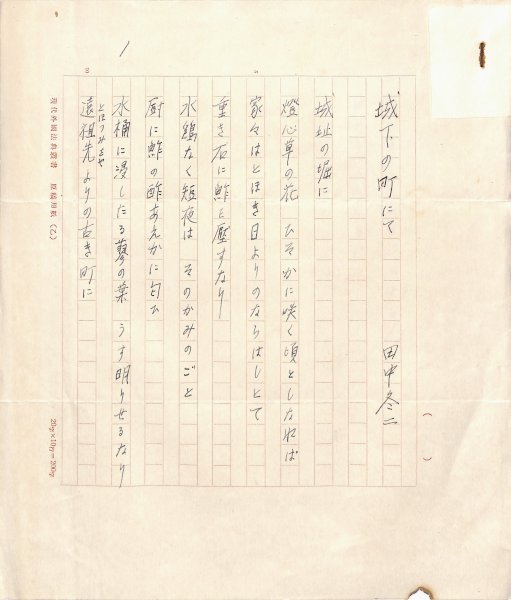 城下の町にて　田中冬二
城址の堀に
燈心草の花　ひそかに咲く頃としなれば
家々はとほき日よりのならはしとて
重き石に鮓を壓すなり
水鶏なく短夜は　そのかみのごと
厨に鮓の酢あえかに匂ひ
水桶に浸したる蓼の葉　うす明りせるなり
とほつみおや
遠祖先よりの古き町に
1
5
現代外國法典叢書　原稿用紙（乙）
20×10=200